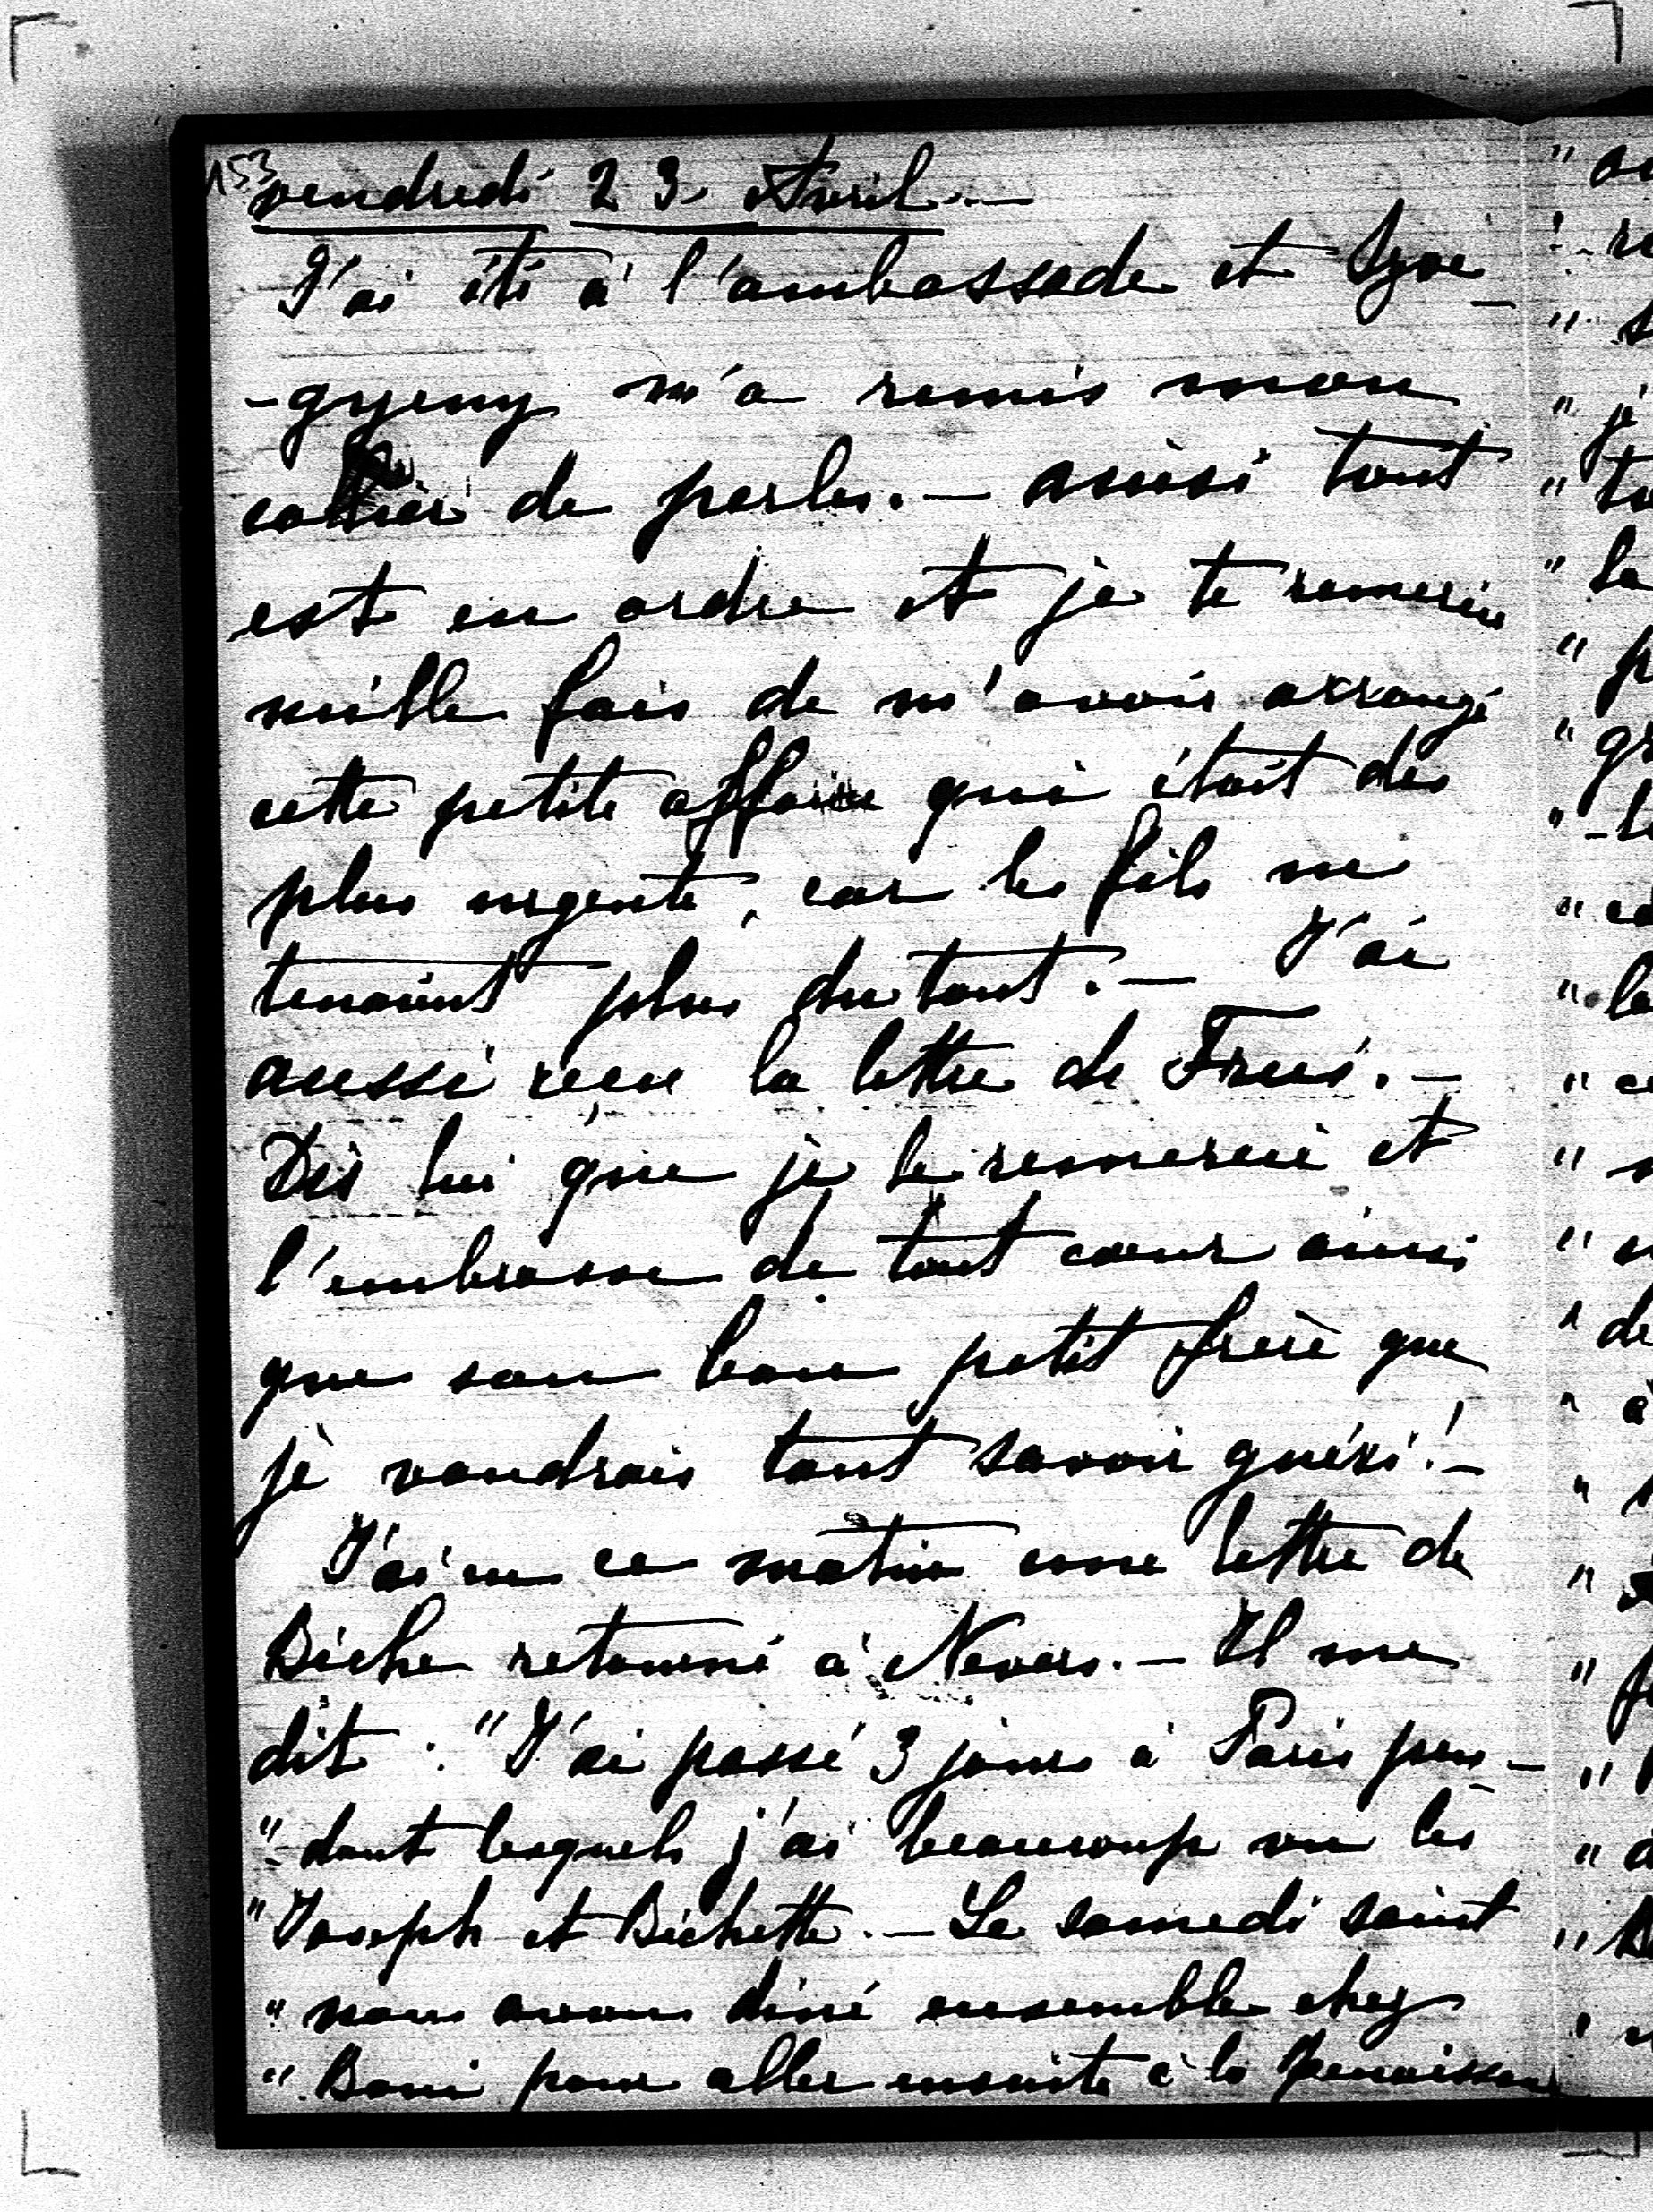 153
vendredi 23. Avril.—
J'ai été à l'ambassade et Szoe-
-gyeny m'a remis mon
collier de perles.— ainsi tout
est en ordre et je te remercie
mille fois de m'avoir arrangé
cette petite affaire qui était des
plus urgente, car les fils ne
tenaient plus du tout.— J'ai
aussi reçu la lettre de
Dis lui que je le remercie et
l'embrasse de tout cœur ainsi
que son bon petit frère que
je voudrais tant savoir guéri!—
J'ai eu ce matin une lettre de
Biche retourné à Nevers.— Il me
dit : "J'ai passé 3 jours à Paris pen-
"-dant lesquels j'ai beaucoup vu les
"Joseph et Bichette.— Le samedi saint
"nous avons diné ensemble chez
"Boni pour aller ensuite à la Renaissance